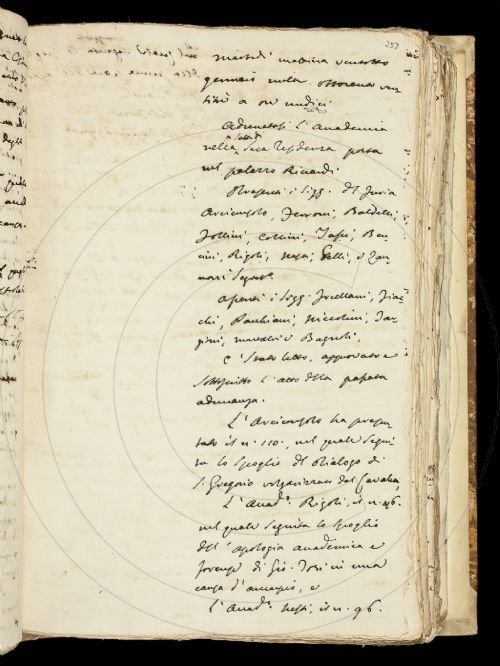 257
Martedì mattina ventotto
gennaio mille ottocento ven
titrè a ore undici
Adunatasi l'Accademia
nella solita Sua residenza posta
nel palazzo Riccardi
Presenti i Sigg. del Furia
Arciconsolo, Ferroni, Baldelli,
Follini, Collini, Targi, Ben
cini, Rigoli, Nesti, Gelli, e Zan
noni Segret.
Assenti i Sigg. Fiac
chi, Pauliani, Niccolini, Tar
gioni, e Bagnoli,
È stato letto, approvato e
sottoscritto l'atto della passata
adunanza.
L'Arciconsolo ha presen
tato il n. 110., nel quale segui
ta lo spoglio del dialogo di
S. Gregorio volgarizzato dal Cavalca,
L'Accad.º Rigoli, il n. 96.
nel quale seguita lo spoglio
dell'apologia accademica e
forense di Gio. in una
causa d'omicidio, e
L'Accad.º Nesti, il n. 96.